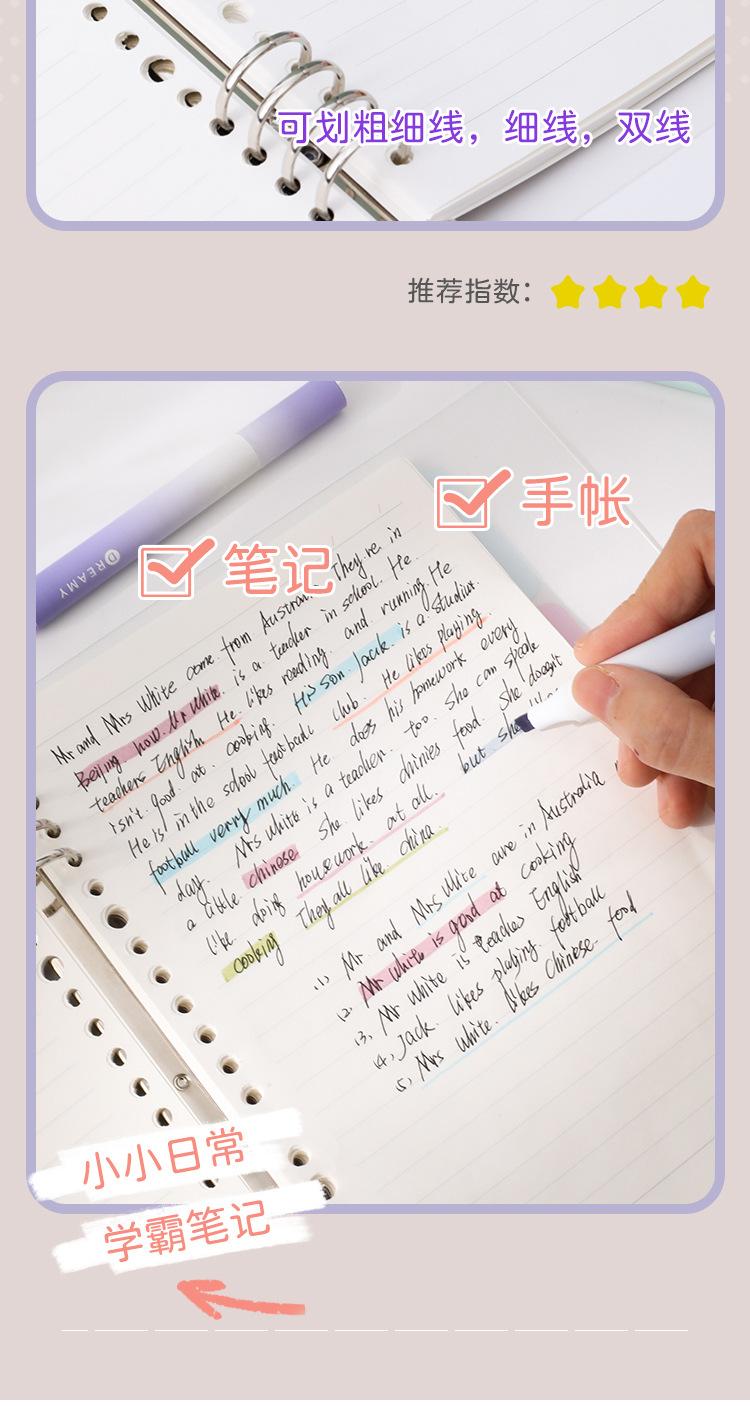 可划粗细线，细线，双线
推荐指数：
手帐
笔记
DREAMY
Mr and Mrs White come from Austral. They're in
Beijing now. Mr White is a teacher in school. He
teachers English. He likes reading and running. He
isn't good at cooking. His son Jack is a student.
He is in the school football club. He likes playing
football verry much. He does his homework every
day. Mrs white is a teacher. too. She can speak
a little chinese She likes chinies food. She doesn't
like doing housework at all. but she
cooking They all like china.
(1) Mr. and Mrs White are in Australia
(2) Mr white is good at cooking
(3) Mr white is teacher English
(4) Jack. likes playing. football
(5) Mrs White. likes Chinese food
小小日常
学霸笔记